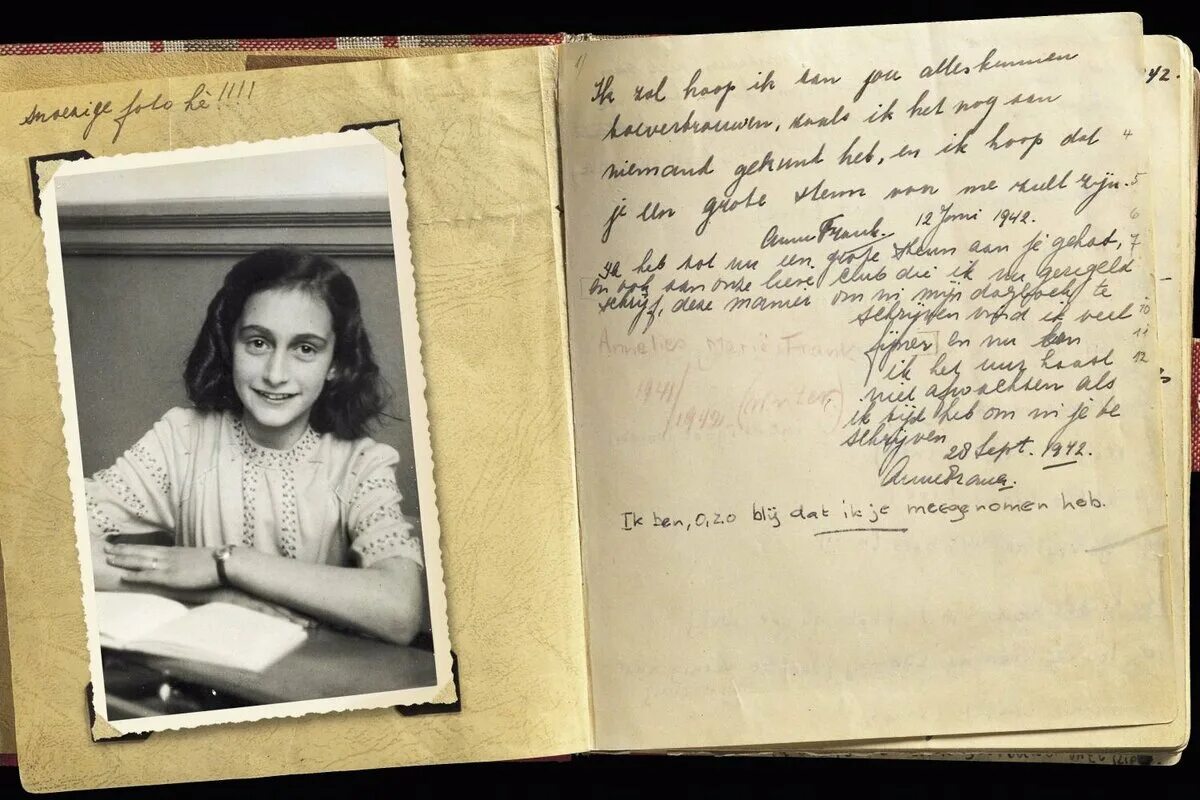 snoezige foto hè!!!!
Ik zal hoop ik aan jou alles kunnen
toevertrouwen, zoals ik het nog aan
niemand gekund heb, en ik hoop dat
je een grote steun voor me zult zijn.
Anne Frank. 12 Juni 1942.
Ik heb tot nu een grote steun aan je gehad,
en ook aan onze lieve club die ik nu geregeld
schrijf, deze manier om in mijn dagboek te
schrijven vind ik veel
fijner en nu kan
ik het uur haast
niet afwachten als
ik tijd heb om in je te
schrijven
28 Sept. 1942.
Anne Frank.
Ik ben, o, zo blij dat ik je meegenomen heb.
Annelies Marie Frank
1941/
/1942
42.
4
5
6
7
10
11
12